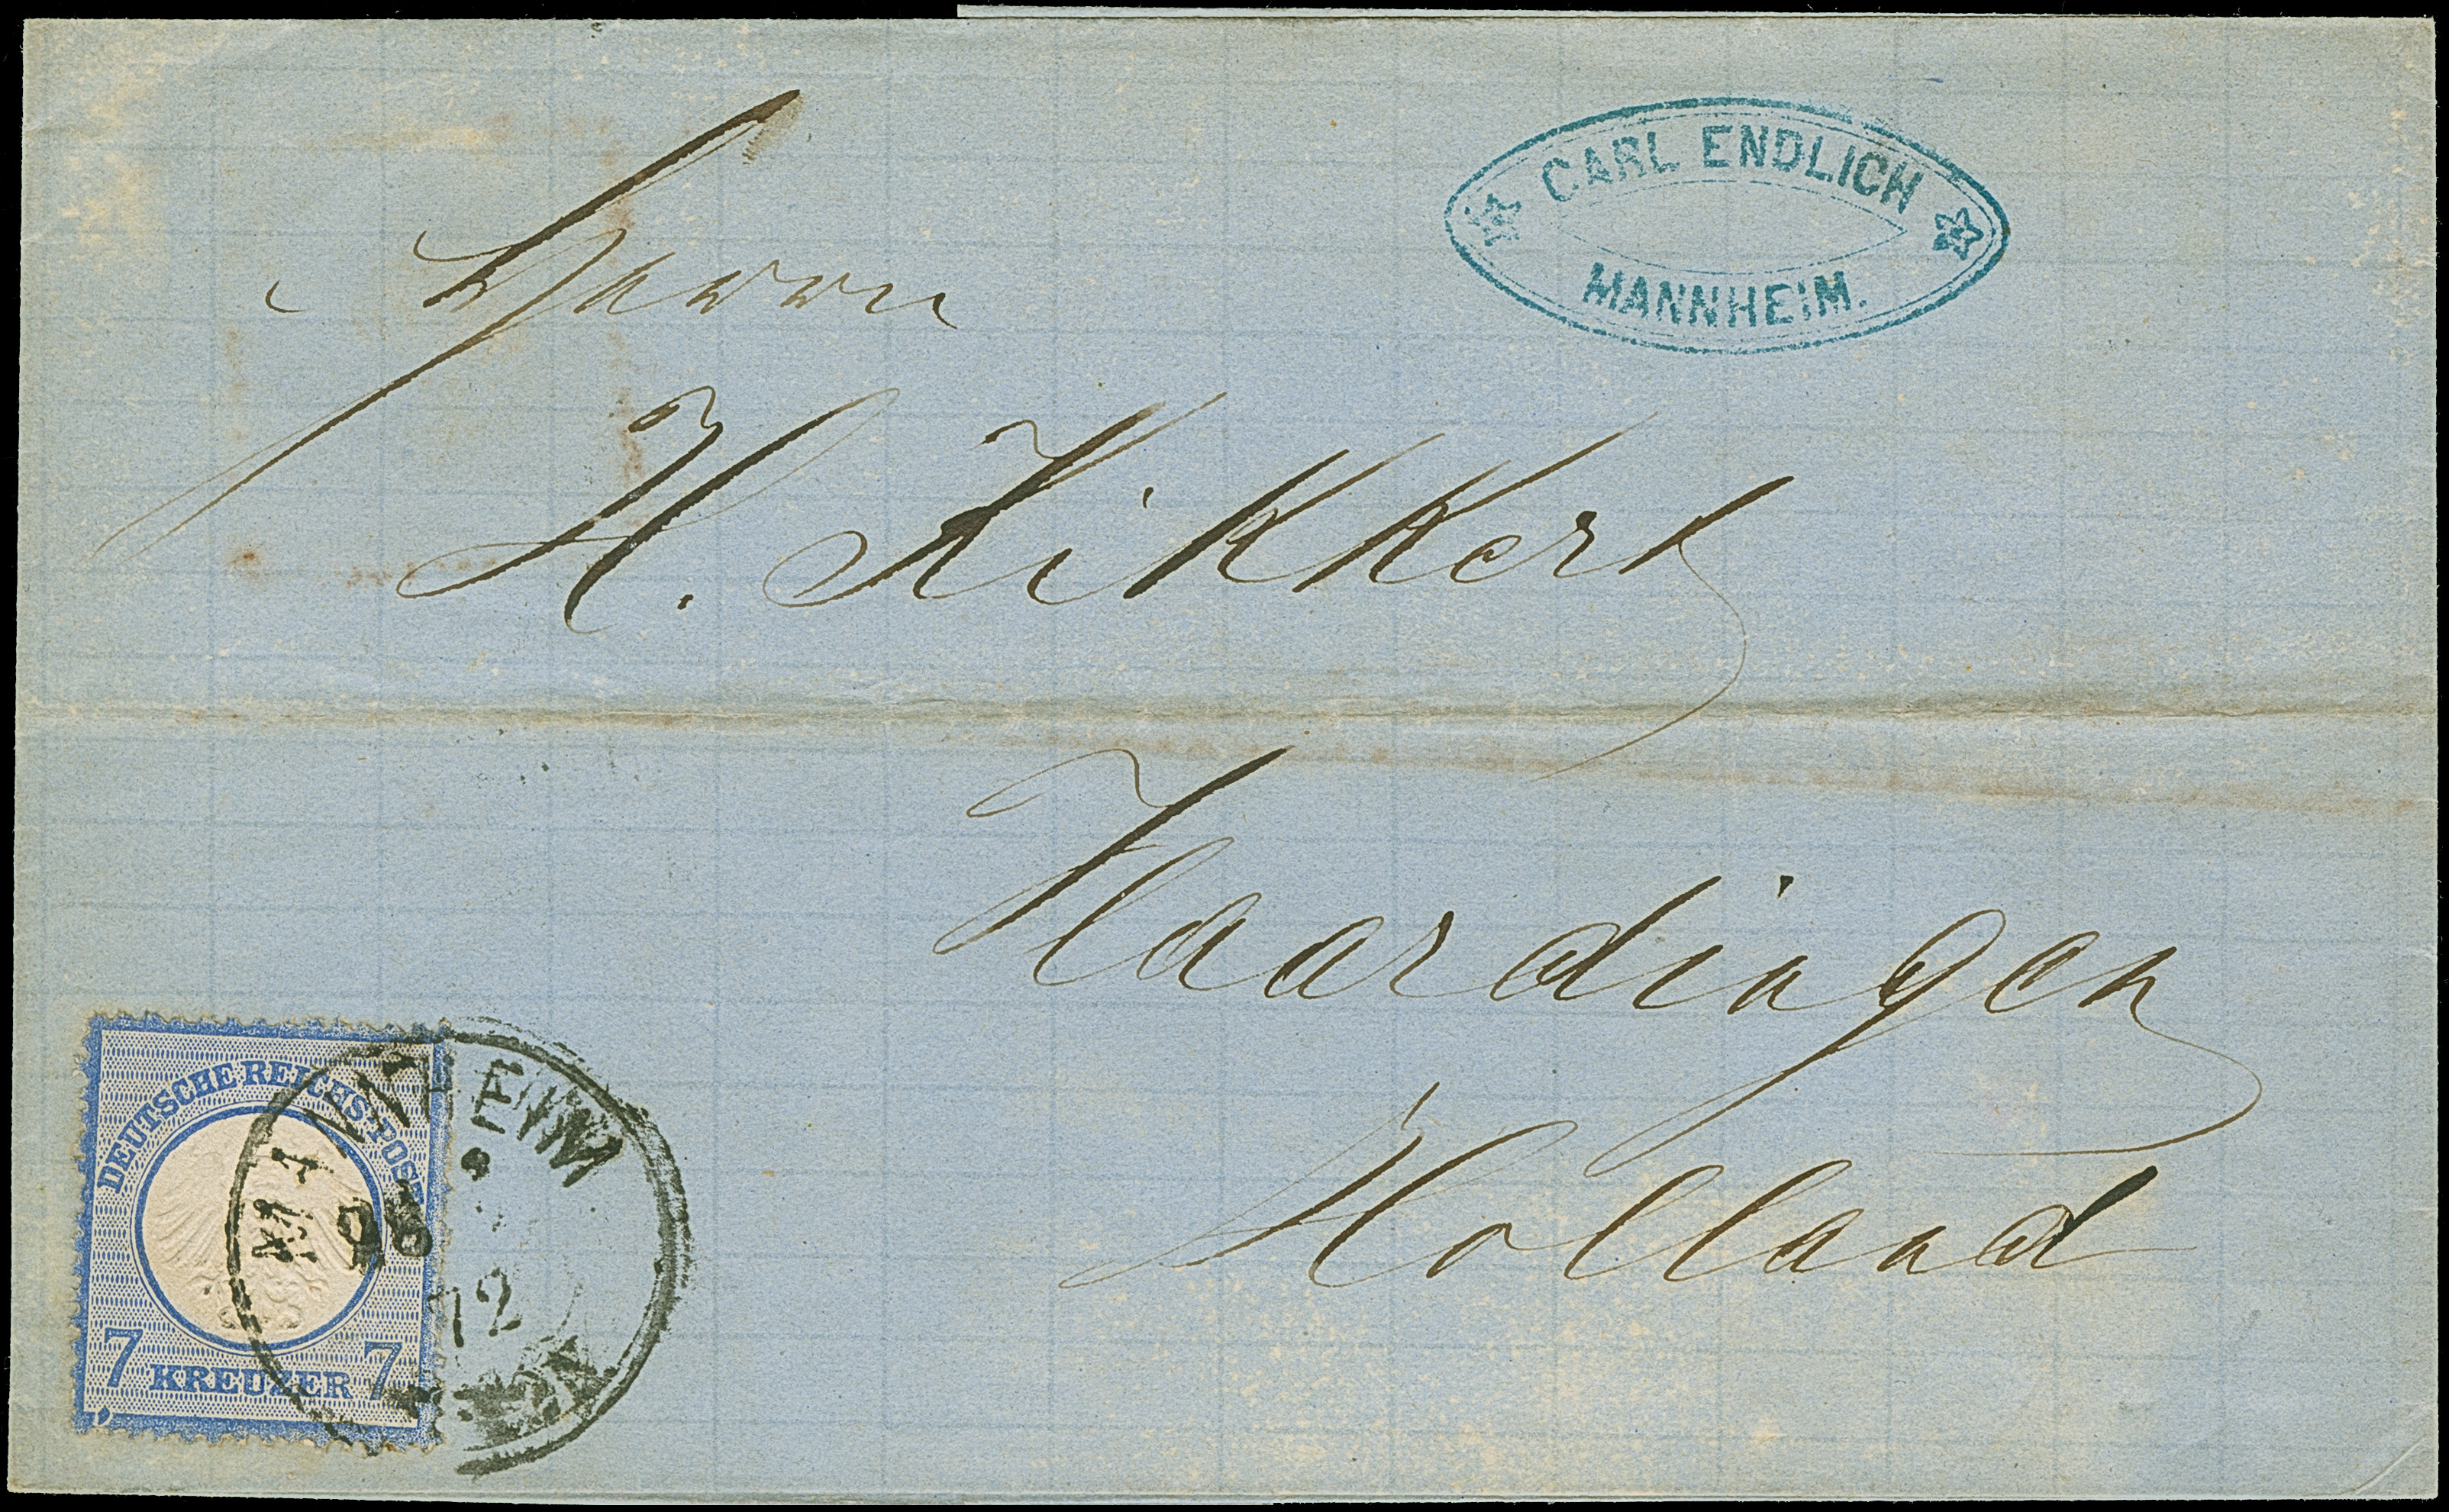 CARL ENDLICH
MANNHEIM.
Herrn
H. Kikkert
Vlaardingen
Holland
DEUTSCHE REICHS-POST
7 KREUZER 7
MANNHEIM
12